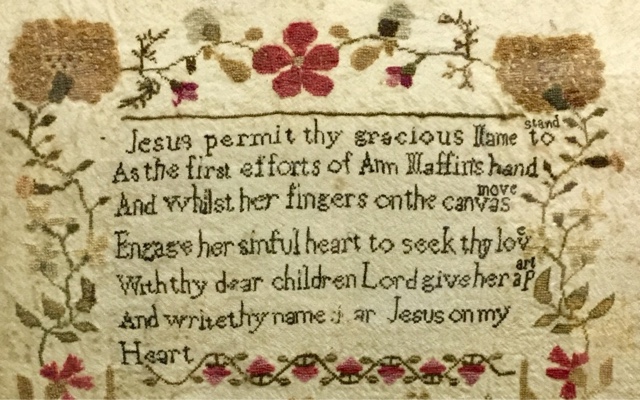 Jesus permit thy gracious Name to stand
As the first efforts of Ann Maffin's hand
And whilst her fingers on the canvas move
Engage her sinful heart to seek thy love
With thy dear children Lord give her a part
And write thy name ar Jesus on my
Heart